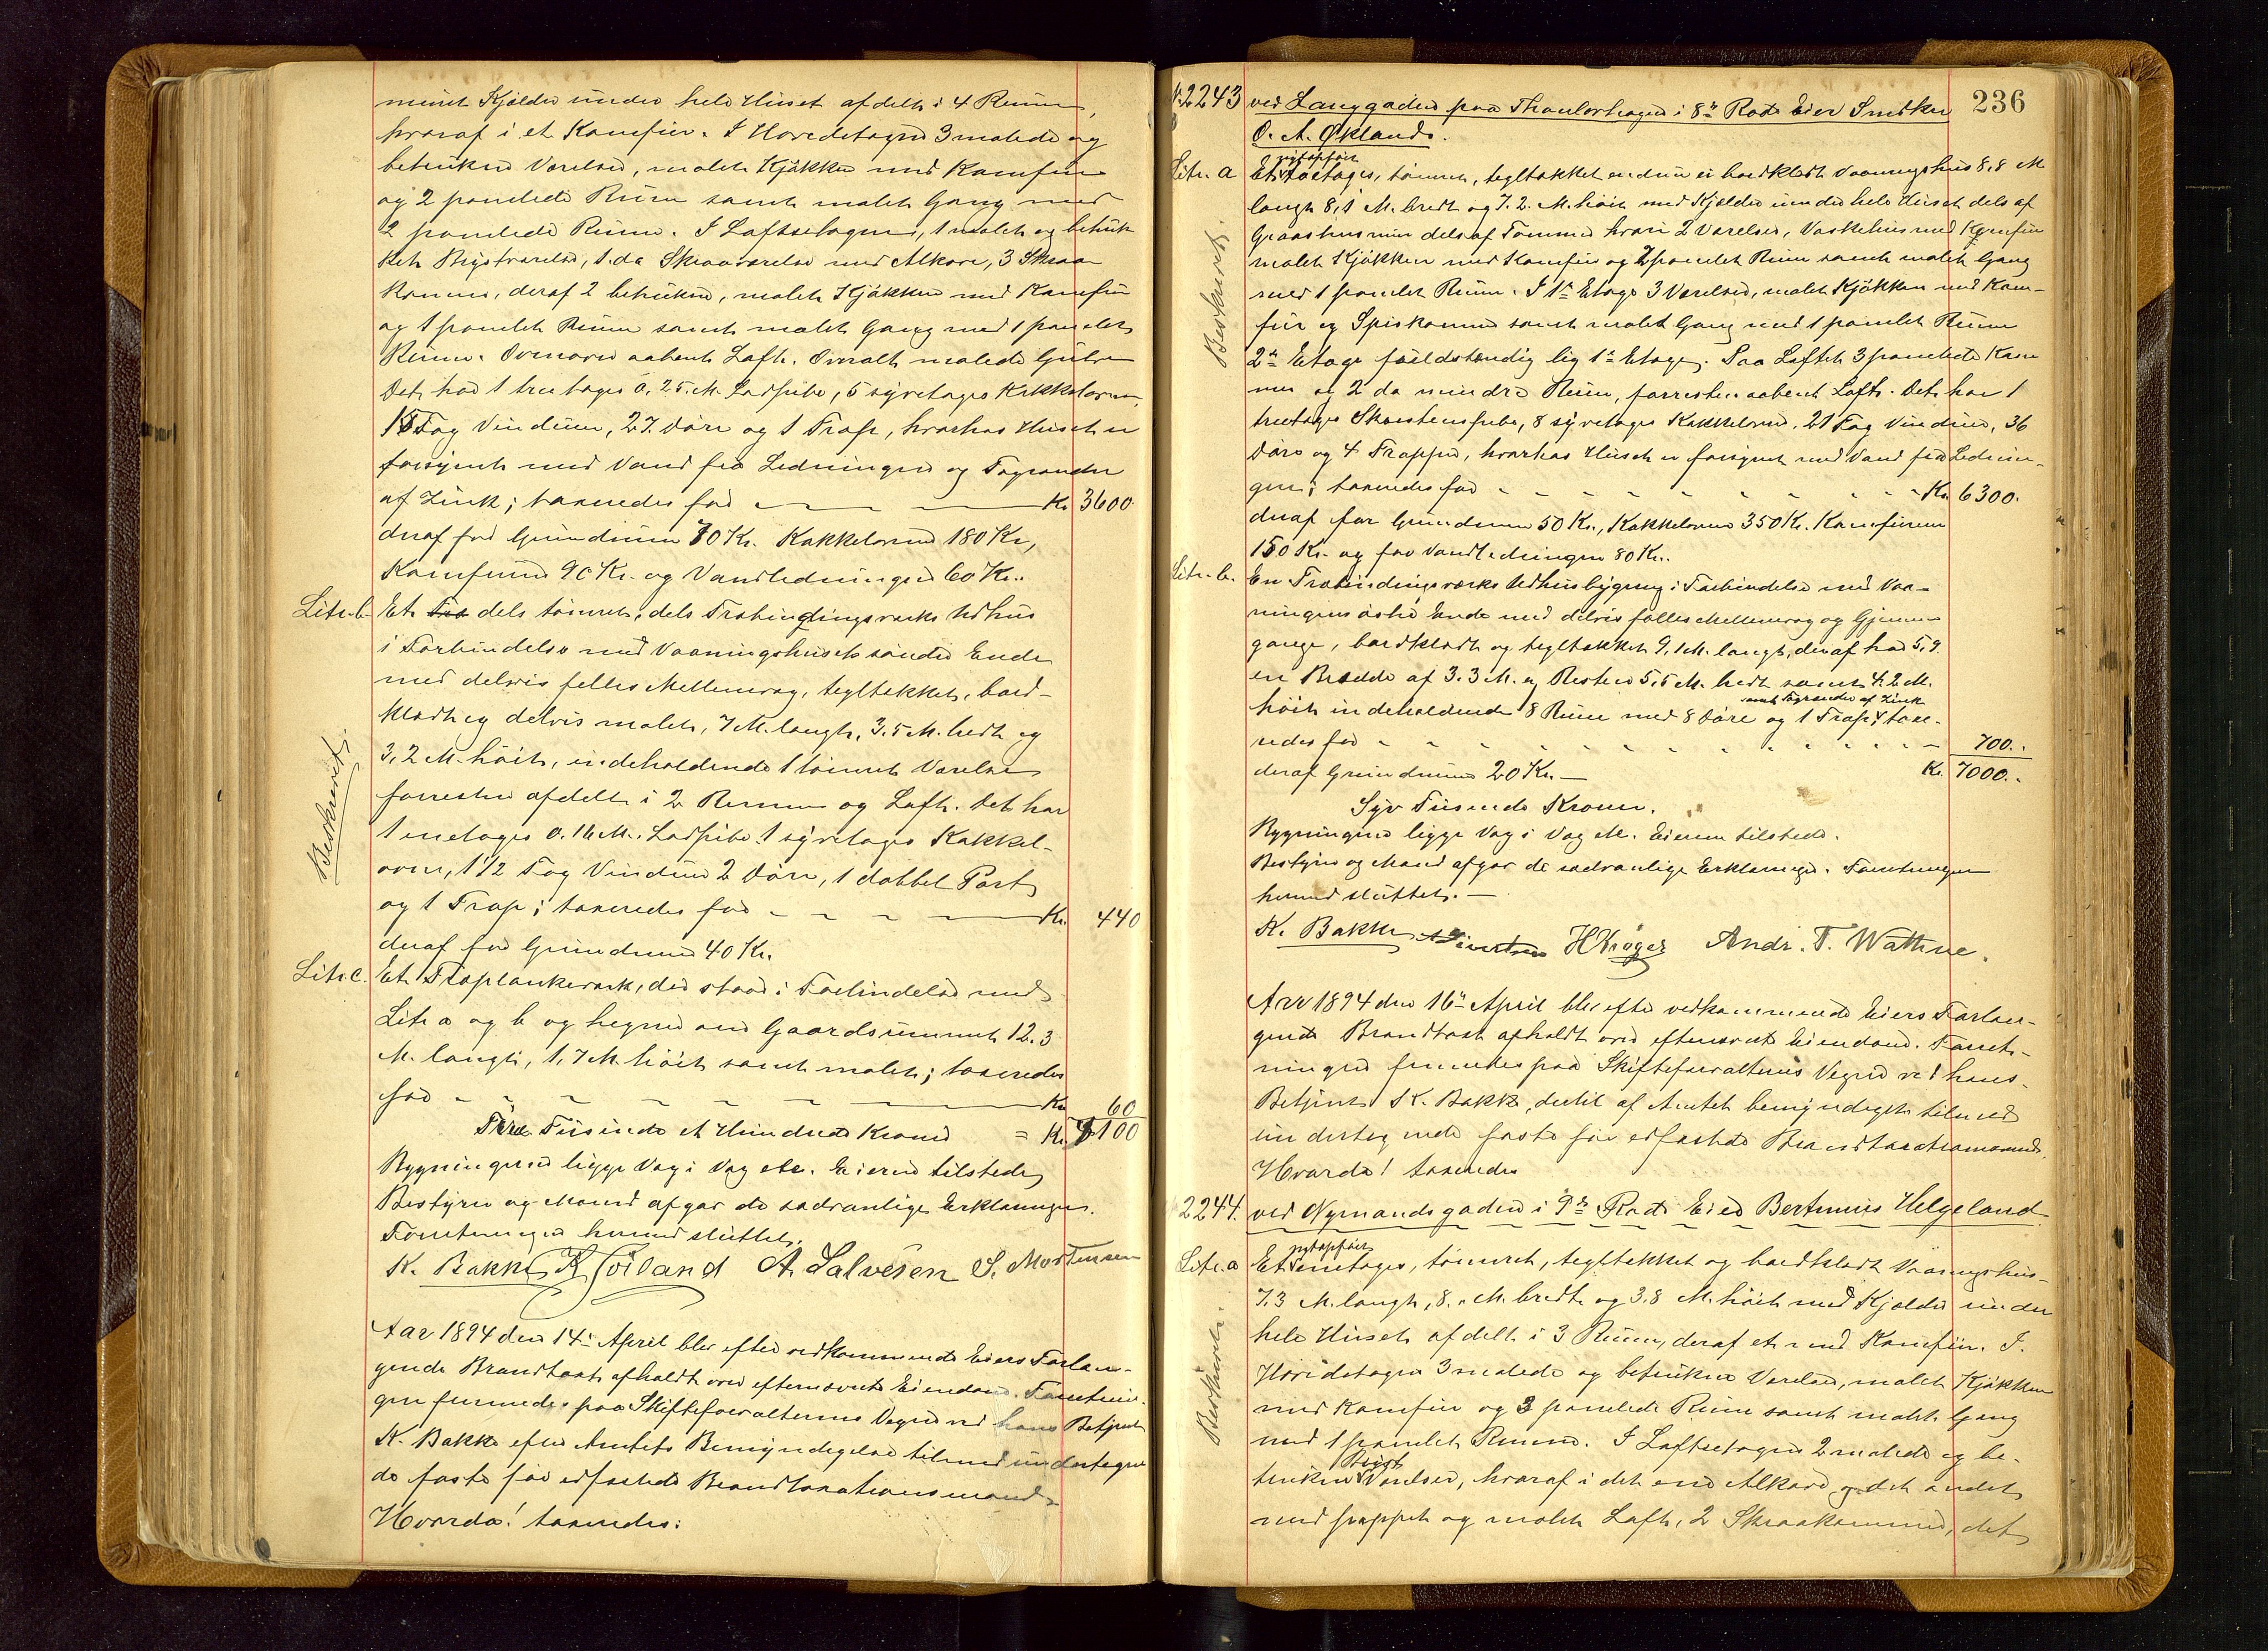 muret Kjælder under hele Huset afdelt i 4 Rum,
hvoraf i et Komfur. I Hovedetagen 3 malede og
betrukne Værelser, malet Kjøkken med Komfur
og 2 panelede Rum samt malet Gang med
2 panelede Rum. I Loftsetagen, 1 malet og betruk-
ket Bryst værelse, 1 do Skraaværelse med Alkove, 3 Skraa
kammer, deraf 2 betrukne, malet Kjøkken med Komfur
og 1 panelet Rum samt malet Gang med 1 panelet
Rum. Ovenover aabent Loft. Overalt malede Gulve
Det har 1 tre etages 0,25 M. Ladpibe, 5 syvetages Kakkelovne,
Fag Vinduer, 27 Døre og 1 Trap, hvorhos Huset er
forsynet med Vand fra Ledningen og Tagrender
af Zink; taxeredes for Kr 3600
deraf for Grundmur 70 Kr. Kakkelovne 180 Kr,
Komfurene 90 Kr. og Vandledningen 60 Kr.
Litr. b. Et dels tømret, dels Træbindingsværks Udhus
i Forbindelse med Vaaningshusets søndre Ende
med delvis fælles Mellemvæg, tegltækket, bord-
klædt og delvis malet, 7 M. langt, 3,5 M. bredt og
3,2 M. høit, indeholdende 1 tømret Værelse
forresten afdelt i 2 Rum og Loft. Det har
1 enetages 0.16 M. Ladpibe 1 syvetages Kakkel-
ovn, 1 1/2 Fag Vinduer 2 Døre, 1 dobbel Port
og 1 Trap; taxeredes for Kr. 440
deraf for Grundmur 40 Kr.
Litr. c. Et Træplankeværk, der staar i Forbindelse med
Litr a og b og hegner om Gaardsrummet 12.3
M. langt, 1,7 M. høit samt malet; taxeredes
for Kr 60
Fire Tusinde et Hundrede Kroner = Kr. 4100
Bygningerne ligge Væg i Væg etc. Eieren tilstede
Bestyrer og Mænd afgav de sædvanlige Erklæringer.
Forretningen hermed sluttet.
K. Bakke K Höiland A. Salvesen S. Mortensen
Aar 1894 den 14de April blev efter vedkommende Eiers Forlan-
gende Brandtaxt afholdt over efternævnte Eiendom. Forretnin-
gen fremmedes paa Skifteforvalterens Vegne ved hans Betjent
K. Bakke efter Amtets Bemyndigelse tilmed undertegne
de faste for edfæstede Brandtaxationsmænd.
Hvorda! taxeredes:
Beskrevet.
236
No 2243 ved Langgaden paa Thoulorhagen i 8de Rode Eier Snedker
O. A. Økland.
Litr. a Et nyopført toetages, tømret, tegltækket endnu ei bordklædt Vaaningshus 8,8 M
langt 8,1 M. bredt og 7.2. M. høit med Kjælder under hele Huset dels af
Graastensmur dels af Tømmer hvori 2 Værelser, Vaskehus med Komfur
malet Kjøkken med Komfur og 2 panelet Rum samt malet Gang
med 1 panelet Rum. I 1ste Etage 3 Værelser, malet Kjøkken med Kom-
fur og Spiskammer samt malet Gang med 1 panelet Rum
2den Etage fuldstændig lig 1ste Etage. Paa Loftet 3 panelede Kam
mer og 2 do mindre Rum, forresten aabent Loft. Det har 1
treetages Skorstenspibe, 8 syvetages Kakkelovne, 21 Fag Vinduer, 36
Døre og 4 Trapper, hvorhos Huset er forsynet med Vand fra Lednin-
gen; taxeredes for Kr. 6300.
deraf for Grundmur 50 Kr., Kakkelovne 350 Kr. Komfurene
150 Kr. og for Vandledningen 80 Kr.
Litr. b. En Træbindingsværks Udhusbygning i Forbindelse med Vaa-
ningens østre Ende med delvis fælles Mellemvæg og Gjennem
gange, bordklædt og tegltækket 9,1 M. langt, deraf har 5,9
en Bredde af 3.3 M. og Resten 5,5 M. bredt samt 4.2 M.
høit indeholdende 8 Rum med 8 Døre og 1 Trap samt Tagrender af Zink; taxe-
redes for 700.
deraf Grundmur 20 Kr. Kr. 7000.
Syv Tusinde Kroner.
Bygningerne ligge Væg i Væg etc. Eieren tilstede.
Bestyrer og Mænd afgav de sædvanlige Erklæringer. Forretningen
hermed sluttet.
K. Bakke HKröger Andr. T. Wathne.
Aar 1894 den 16de April blev efter vedkommende Eiers Forlan-
gende Brandtaxt afholdt over efternævnte Eiendom. Forret-
ningen fremmedes paa Skifteforvalterens Vegne ved hans
Betjent K. Bakke, dertil af Amtet bemyndiget tilmed
undertegnede faste for edfæstede Brandtaxationsmænd.
Hvorda! taxeredes
2244. ved Nymandsgaden i 9de Rode Eier Bertinius Helgeland
Litr. a Et nyopført enetages, tømret, tegltækket og bordklædt Vaaningshus
7,3 M. langt, 8. M. bredt og 3.8 M. høit med Kjælder under
hele Huset afdelt i 3 Rum, deraf et med Komfur. I
Hovedetagen 3 malede og betrukne Værelser, malet Kjøkken
med Komfur og 3 panelede Rum samt malet Gang
med 1 panelet Rum. I Loftsetagen 2 malede og be-
trukne Bryst Værelser, hvoraf i det ene Alkove og det andet
med pappet og malet Loft, 2 Skraakammer, det
Beskrevet.
Beskrevet.